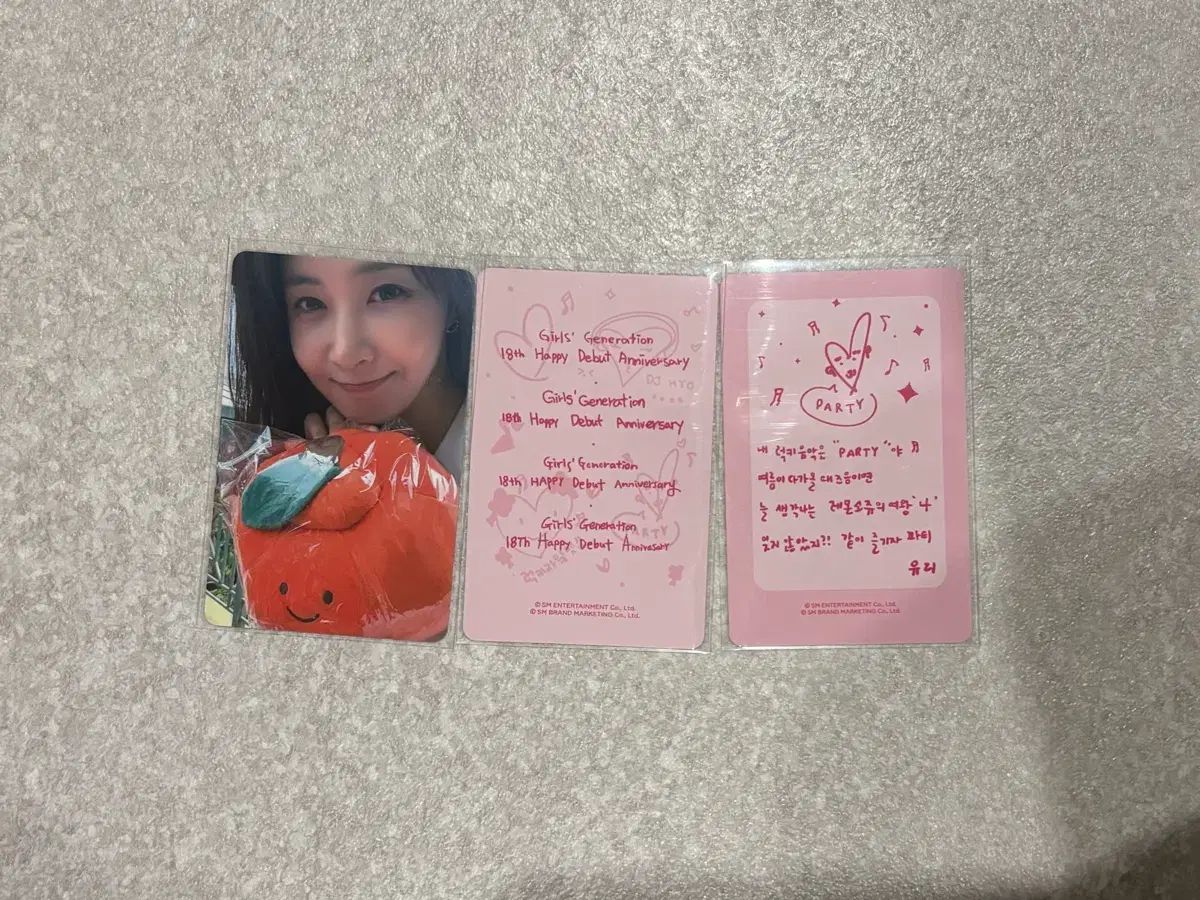 Girls' Generation
18th Happy Debut Anniversary
Girls' Generation
18th Happy Debut Anniversary
Girls' Generation
18th HAPPY Debut Anniversary
Girls' Generation
18Th Happy Debut Annivasary
DJ HYO
PARTY
© SM ENTERTAINMENT Co., Ltd.
© SM BRAND MARKETING Co., Ltd.
PARTY
내 럭키음악은 "PARTY"야
여름이 다가올 때 즈음이면
늘 생각나는 레몬소쥬의 여왕 '나'
잊지 않았지?! 같이 즐기자 파티
유리
© SM ENTERTAINMENT Co., Ltd.
© SM BRAND MARKETING Co., Ltd.